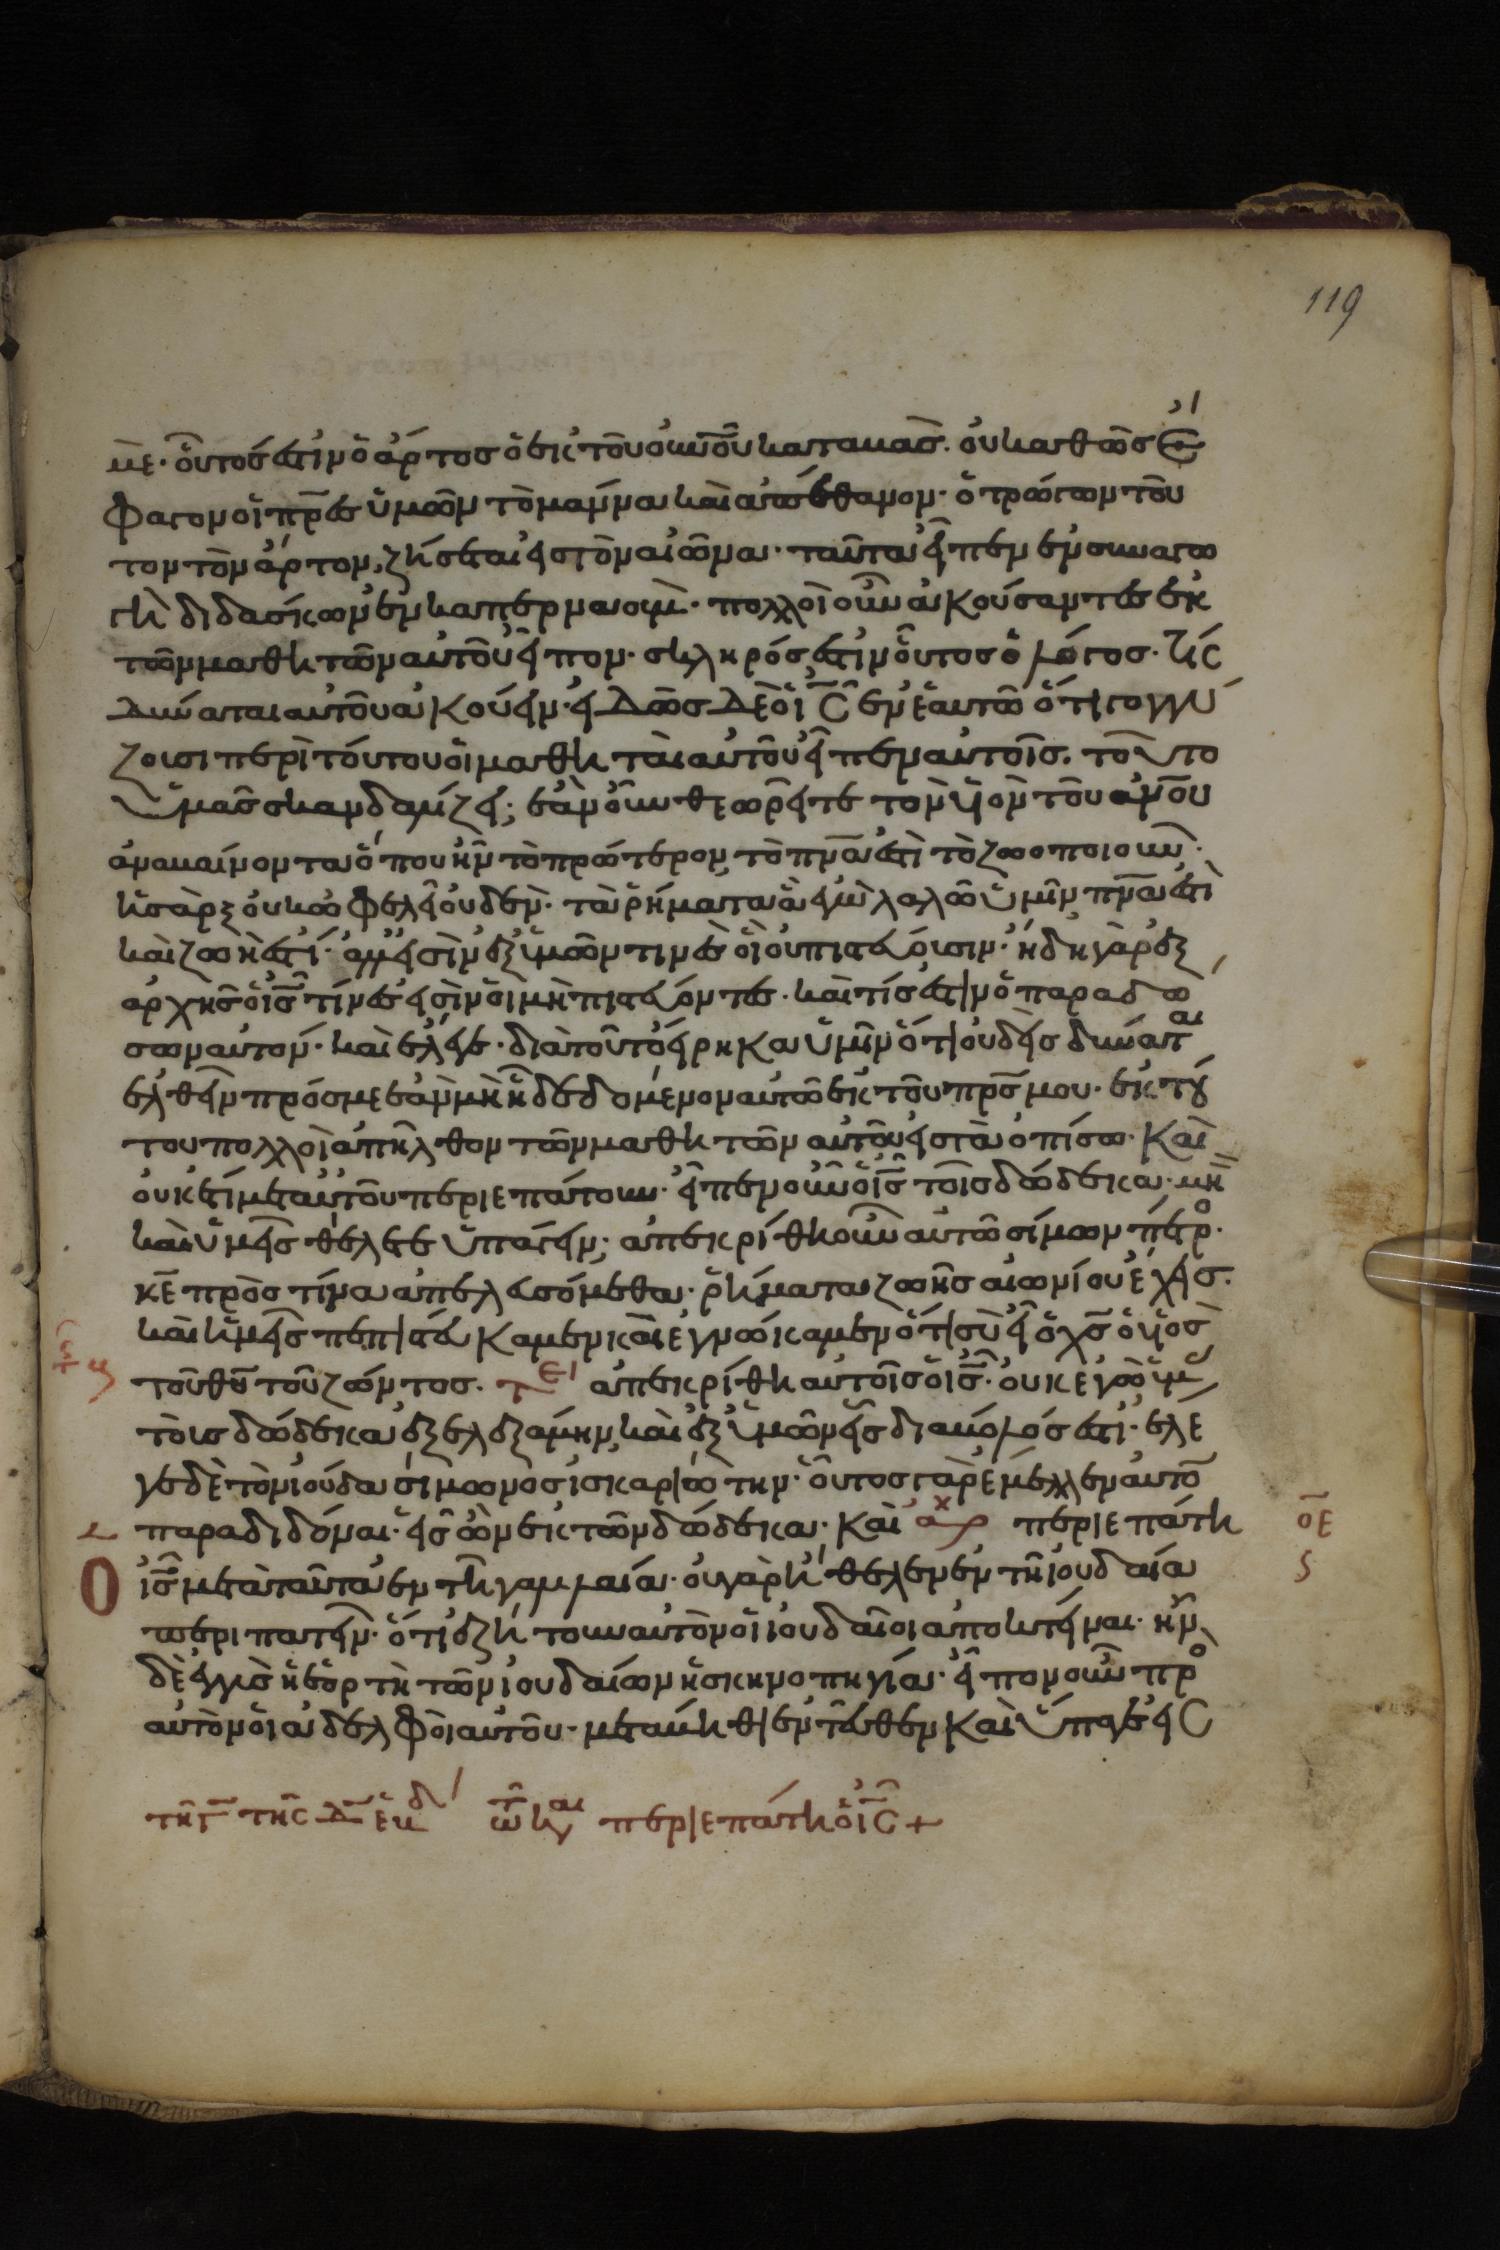 119
με· οὗτός ἐστιν ὁ ἄρτος ὁ ἐκ τοῦ οὐνοῦ καταβάς. οὐ καθὼς ἔ
φαγον οἱ πρ̅ες ὑμῶν τὸ μάννα καὶ ἀπέθανον· ὁ τρώγων τοῦ
τον τὸν ἄρτον, ζήσεται εἰς τὸν αἰῶνα· ταῦτα εἶπεν ἐν συναγω
γῆ διδάσκων ἐν καπερναούμ· πολλοὶ οὖν ἀκούσαντες ἐκ
τῶν μαθητῶν αὐτοῦ εἶπον· σκληρός ἐστιν οὗτος ὁ λόγος· τίς
δύναται αὐτοῦ ἀκούειν· εἰδὼς δὲ ὁ ι̅ς̅ ἐν ἑαυτῶ ὅτι γογγύ
ζουσι περὶ τούτου οἱ μαθηταὶ αὐτοῦ εἶπεν αὐτοῖς. τοῦτο
ὑμᾶς σκανδαλίζει; ἐὰν οὖν θεωρῆτε τὸν υἱὸν τοῦ α̅ν̅ο̅υ
ἀναβαίνοντα ὅπου ἦν τὸ πρότερον, τὸ πν̅α ἐστὶ τὸ ζωοποιοῦν·
ἡ σὰρξ οὐκ ὠφελεῖ οὐδέν· τὰ ῥήματα ἃ ἐγὼ λαλῶ ὑμῖν πν̅α ἐστὶ
καὶ ζωή ἐστί· ἀλλ' εἰσὶν ἐξ ὑμῶν τινὲς οἳ οὐ πιστεύουσιν· ἤδη γὰρ ἐξ
ἀρχῆς ὁ ι̅ς̅ τίνες εἰσὶν οἱ μὴ πιστεύοντες· καὶ τίς ἐστιν ὁ παραδώ
σων αὐτόν· καὶ ἔλεγε· διὰ τοῦτο εἴρηκα ὑμῖν ὅτι οὐδεὶς δύναται
ἐλθεῖν πρός με ἐὰν μὴ ἦ δεδομένον αὐτῶ ἐκ τοῦ πρ̅ς μου· ἐκ τού
του πολλοὶ ἀπῆλθον τῶν μαθητῶν αὐτοῦ εἰς τὰ ὀπίσω· καὶ
οὐκέτι μετ' αὐτοῦ περιεπάτουν· εἶπεν οὖν ὁ ι̅ς̅ τοῖς δώδεκα· μὴ
καὶ ὑμεῖς θέλετε ὑπάγειν; ἀπεκρίθη οὖν αὐτῶ σίμων πέτρο·
κ̅ε πρὸς τίνα ἀπελευσόμεθα· ῥήματα ζωῆς αἰωνίου ἔχεις.
καὶ ἡμεῖς πεπιστεύκαμεν καὶ ἐγνώκαμεν ὅτι σὺ εἶ ὁ χ̅ς ὁ υἱὸς
τοῦ θ̅υ τοῦ ζῶντος. τε ἀπεκρίθη αὐτοῖς ὁ ι̅ς̅· οὐκ ἐγὼ ὑμᾶς
τοὺς δώδεκα ἐξελεξάμην καὶ ἐξ ὑμῶν εἷς διάβολός ἐστι· ἔλε
γε δὲ τὸν ἰούδα σίμωνος ἰσκαριώτην· οὗτος γὰρ ἔμελλεν αὐτὸ
παραδιδόναι· εἷς ὢν ἐκ τῶν δώδεκα· καὶ αρχ περιεπάτη
Ο ι̅ς̅ μετὰ ταῦτα ἐν τῆ γαλιλαία· οὐ γὰρ ἤθελεν ἐν τῆ ἰουδαία
περιπατεῖν· ὅτι ἐζήτουν αὐτὸν οἱ ἰουδαῖοι ἀποκτεῖναι· ἦν
δὲ ἐγγὺς ἡ ἑορτὴ τῶν ἰουδαίων ἡ σκηνοπηγία· εἶπον οὖν πρὸ
αὐτὸν οἱ ἀδελφοὶ αὐτοῦ· μετάβηθι ἐντεῦθεν καὶ ὕπαγε εἰς
ο̅ε
ς
τῆ γ̅ τῆς δ̅ ἑβδ τῶ καιῶ περιεπάτη ὁ ι̅ς̅ +